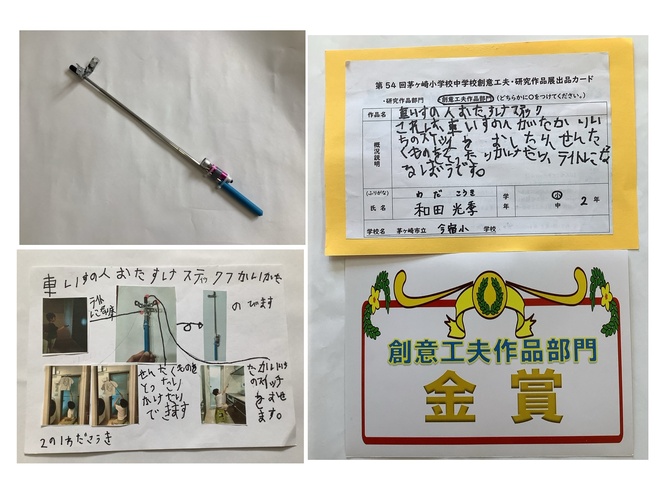 第54回茅ヶ崎小学校中学校創意工夫・研究作品展出品カード
・研究作品部門 創意工夫作品部門 (どちらかに○をつけてください。)
作品名 車いすの人おたすけステック
概況説明
これは、車いすのへ
ちのスイッチを おしたり、せんた
くものをとったりかけたり、ライトにな
るぼうです。
(ふりがな) わだ こうき
氏名 和田 光季
学年 小 中 2年
学校名 茅ヶ崎市立 今宿小 学校
創意工夫作品部門
金賞
車いすの人おたすけステックつかいかた
ライト
のびます
せんたくものを
とったり
かけたり
できます
たかい
のスイッチ
をおせ
ます。
2の1わだこうき